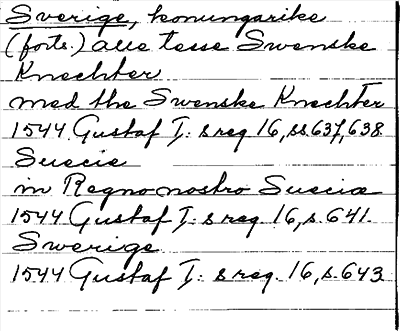 Sverige, konungarike
(forts.) alle tesse Swenske
Knechter
med the Swenske Knechter
1544 Gustaf I: s reg 16, ss 637, 638
Suecie
in Regno nostro Sueciæ
1544 Gustaf I: s reg. 16, s. 641.
Swerige
1544 Gustaf I: s reg. 16, s. 643